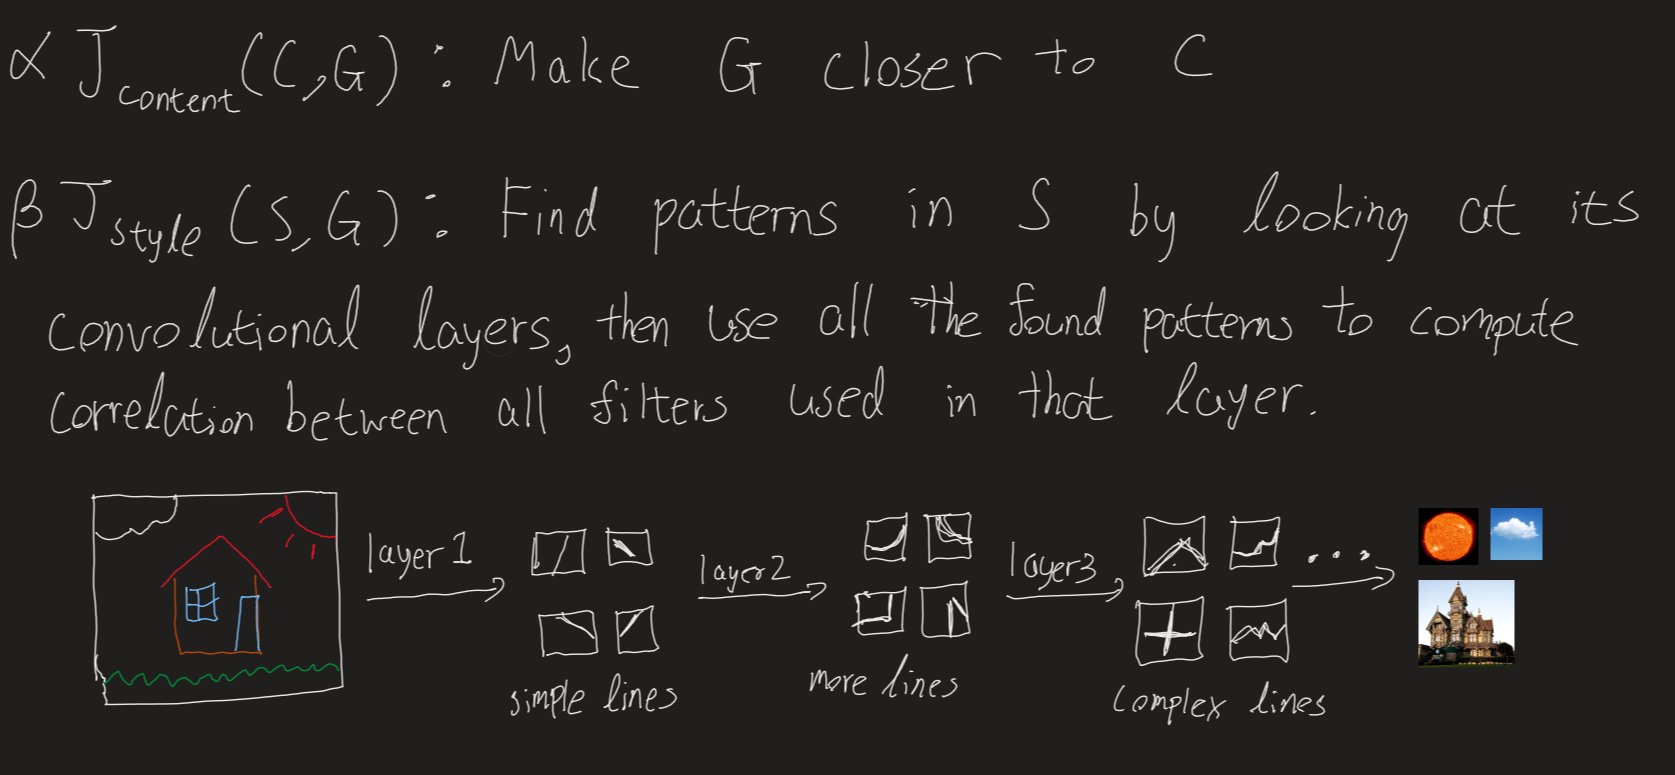 α J content (C,G) : Make G closer to C
β J style (S,G) : Find patterns in S by looking at its
convolutional layers, then use all the found patterns to compute
correlation between all filters used in that layer.
layer 1
layer 2
layer 3
...
simple lines
more lines
complex lines